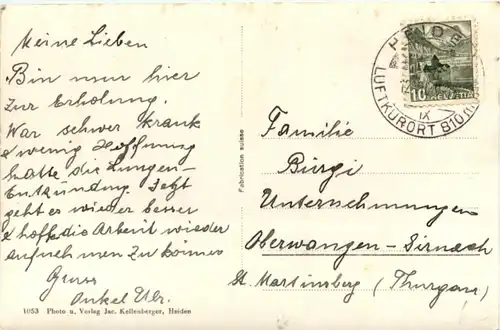 Meine Lieben
Bin nun hier
Zur Erholung.
War schwer krank
& wenig Hoffnung
hatte die Lungen-
Entzündung. Jetzt
geht es wieder besser
& hoffe die Arbeit wieder
aufnehmen zu können
Gruss
Onkel
1053 Photo u. Verlag Jac. Kellenberger, Heiden
Fabrication suisse
HEIDEN
LUFTKURORT 810
IX
10
HELVETIA
Familie
Bürgi
Unternehmungen
Oberwangen-Sirnach
St. Martinsberg (Thurgau)